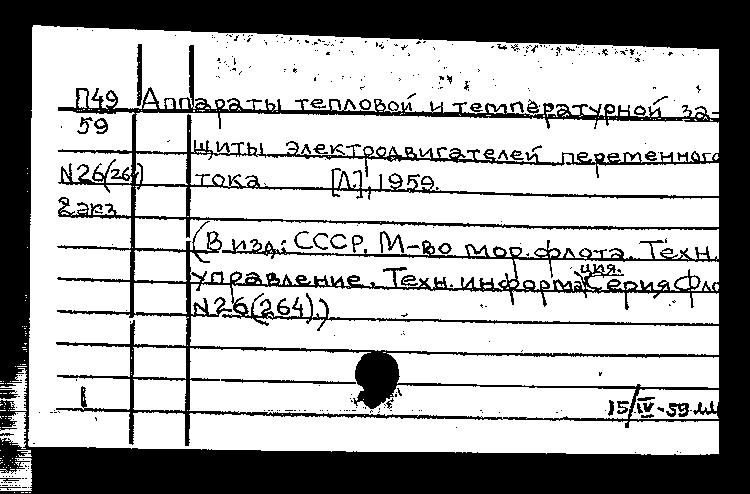 П49 Аппараты тепловой и температурной за-
59
щиты электродвигателей переменного
N26(264) тока. [Л], 1959.
2 экз
(В изд: СССР. М-во мор. флота. Техн.
управление. Техн. информация. Серия Фло
N26(264).)
1
15/IV-59